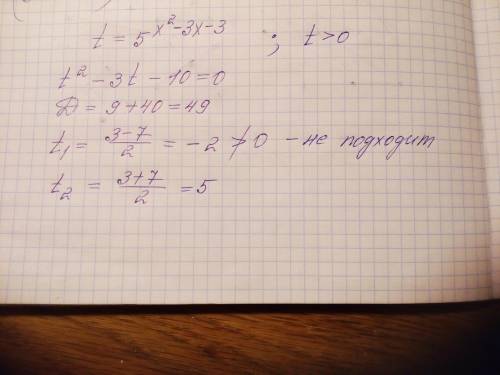 t = 5^{x^2-3x-3} ; t>0
t² - 3t - 10 = 0
D = 9 + 40 = 49
t₁ = \frac{3-7}{2} = -2 ≯ 0 - не подходит
t₂ = \frac{3+7}{2} = 5